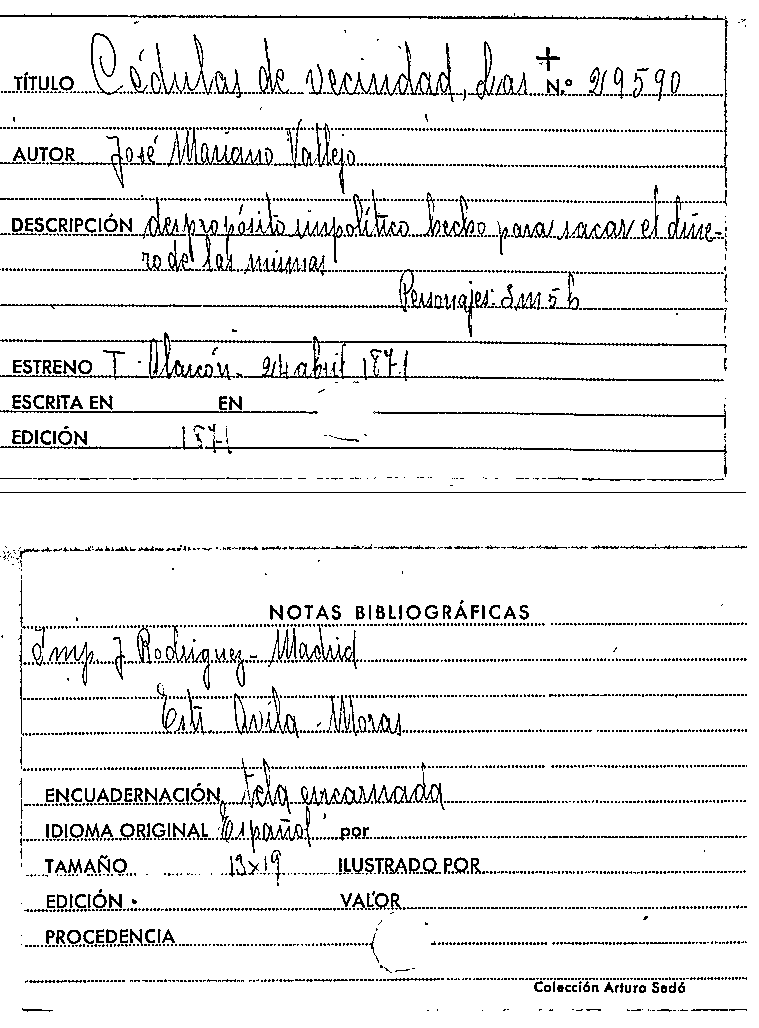 TÍTULO Cédulas de vecindad, Las N.º 29590
AUTOR José Mariano Vallejo
DESCRIPCIÓN despropósito impolítico hecho para sacar el dine-
ro de las mismas
Personajes: 3 m 5 h
ESTRENO T. Alarcón - 24 abril 1871
ESCRITA EN EN
EDICIÓN 1871
NOTAS BIBLIOGRÁFICAS
Imp. J Rodriguez - Madrid
Estr. Avila - Moras
ENCUADERNACIÓN tela encarnada
IDIOMA ORIGINAL Español por
TAMAÑO 13x19 ILUSTRADO POR
EDICIÓN VALOR
PROCEDENCIA
Colección Arturo Sedó